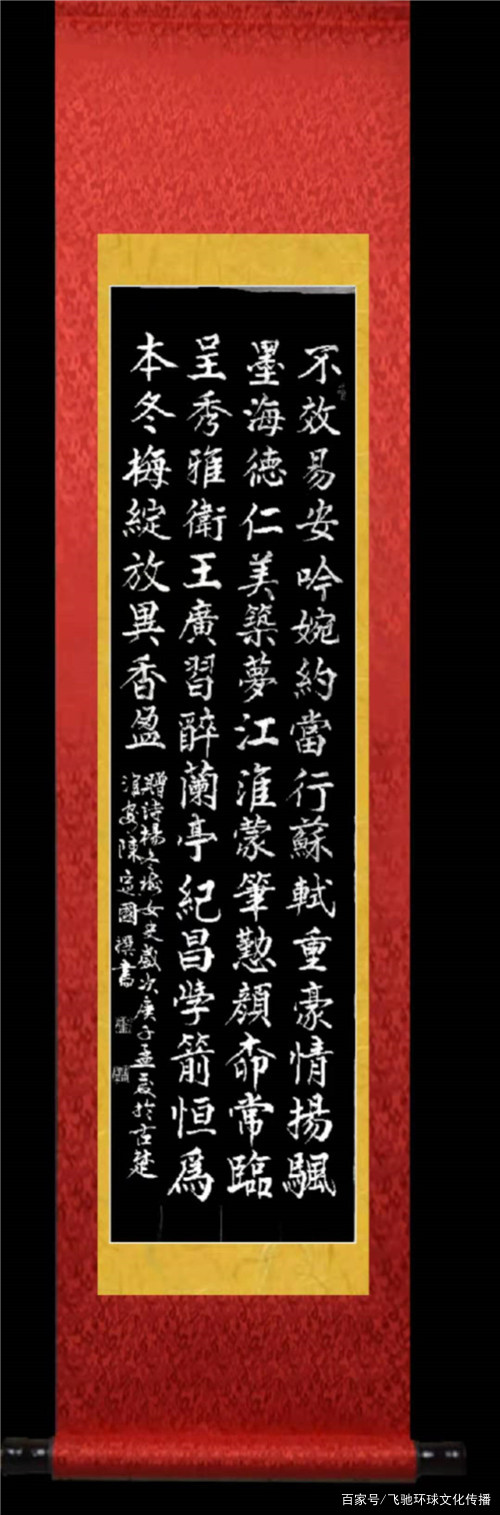 不效易安吟婉約當行蘇軾重豪情揚颿
墨海德仁美築夢江淮蒙筆懃顏柳常臨
呈秀雅衛王廣習醉蘭亭紀昌學箭恒爲
本冬梅綻放異香盈
贈詩楊女史歲次庚子孟夏於古楚
淮安陳國撰書
百家号/飞驰环球文化传播